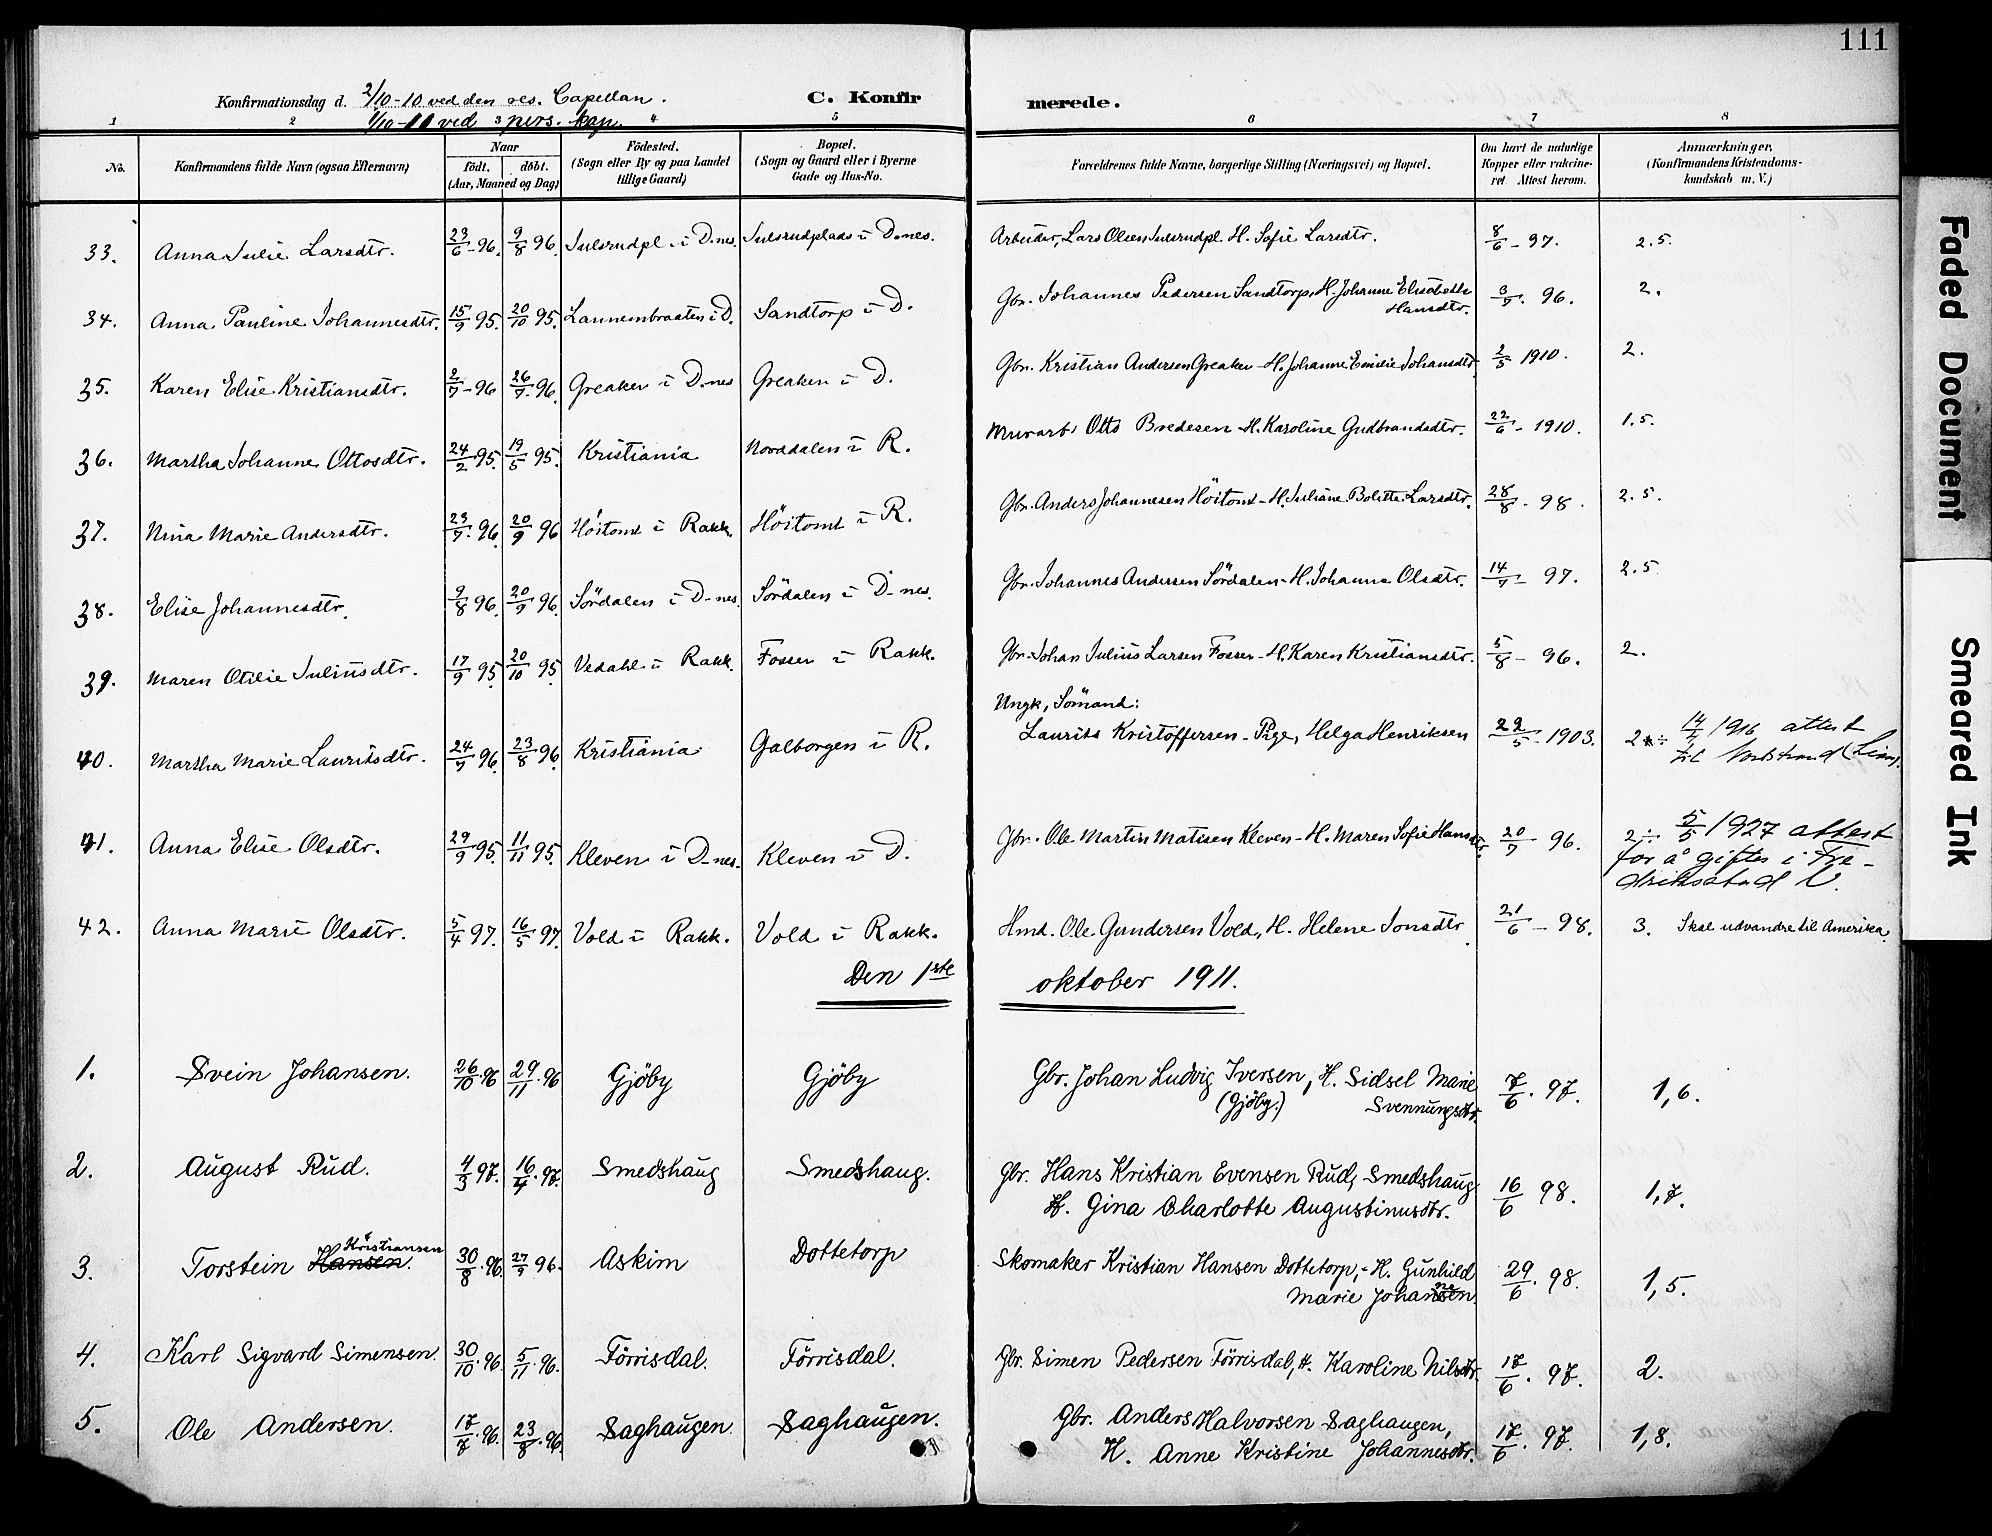 111
Konfirmationsdag d. 2/10-10 ved den res. Capellan.
1/10-11 ved pers. kap.
C. Konfirmerede.
1 2 3 4 5 6 7 8
No.
Konfirmandens fulde Navn (ogsaa Efternavn)
Naar
födt. döbt.
(Aar, Maaned og Dag)
Födested.
(Sogn eller By og paa Landet
tillige Gaard)
Bopæl.
(Sogn og Gaard eller i Byerne
Gade og Hus-No.
Forældrenes fulde Navne, borgerlige Stilling (Næringsvei) og Bopæl.
Om havt de naturlige
Kopper eller vakcine-
ret. Attest herom.
Anmærkninger.
(Konfirmandens Kristendoms-
kundskab m. V.)
33. Anna Julie Larsdtr. 23/6-96. 9/8 96. Julsrudpl i D-nes. Julsrudplads i D-nes. Arbeider, Lars Olsen Julsrudpl. H. Sofie Larsdtr. 8/6-97. 2.5.
34. Anna Pauline Johannesdtr. 15/9 95. 20/10 95. Lannembraaten i D. Sandtorp i D. Gbr. Johannes Pedersen Sandtorp, H. Johanne Elisabeth
Hansdtr. 3/7. 96. 2.
35. Karen Elise Kristiansdtr. 2/7-96 26/7.96. Greaker i D-nes Greaker i D. Gbr. Kristian Andersen Greaker - H. Johanne Emilie Johansdtr. 2/5 1910. 2.
36. Martha Johanne Ottosdtr. 24/2 95. 19/5 95. Kristiania Norddalen i R. Murarb. Otto Bredesen - H. Karoline Gudbrandsdtr. 22/6-1910. 1.5.
37. Nina Marie Andersdtr. 23/7.96. 20/9 96 Höitomt i Rakk. Höitomt i R. Gbr. Anders Johannesen Höitomt - H. Juliane Bolette Larsdtr. 28/8-98. 2.5.
38. Elise Johannesdtr. 9/8 96. 20/9 96. Sördalen i D-nes. Sördalen i D-nes. Gbr. Johannes Andersen Sördalen - H. Johanne Olsdtr. 14/7-97. 2.5
39. Maren Otilie Juliusdtr. 17/9 95. 20/10 95. Vedahl i Rakk. Fosser i Rakk. Gbr. Johan Julius Larsen Fosser - H. Karen Kristiansdtr. 5/8-96. 2.
Ungk, Sömand:
40. Martha Marie Lauritsdtr. 24/7 96. 23/8 96. Kristiania Galborgen i R. Laurits Kristoffersen - Pige, Helga Henriksen 22/5-1903. 2 ÷ 14/7 1916 attest
til Nordstrand
41. Anna Elise Olsdtr. 29/9 95. 11/11 95. Kleven i D-nes. Kleven i D. Gbr. Ole Martin Matisen Kleven - H. Maren Sofie Hansdtr. 20/7 96. 2 ÷ 5/5 1927 attest
for å giftes i Fre-
driksstad V.
42. Anna Marie Olsdtr. 5/4 97. 16/5 97. Vold i Rakk. Vold i Rakk. Hmd. Ole Gundersen Vold, H. Helene Jonsdtr. 21/6-98. 3. Skal udvandre til Amerika.
Den 1ste oktober 1911.
1. Svein Johansen. 26/10.96 29/11.96 Gjöby Gjöby Gbr. Johan Ludvig Iversen, H. Sidsel Marie
(Gjöby.) Svennungsdtr. 7/6.97. 1,6.
2. August Rud. 4/3 97. 16/4.97. Smedshaug Smedshaug. Gbr. Hans Kristian Evensen Rud, Smedshaug
H. Gina Charlotte Augustinusdtr. 16/6 98. 1,7.
Kristiansen
3. Torstein Hansen. 30/8.96. 27/9 96. Askim Dottetorp Skomaker Kristian Hansen Dottetorp, - H. Gunhild
Marie Johansen. 29/6.98. 1,5.
4. Karl Sigvard Simensen. 30/10.96. 5/11.96. Förrisdal. Förrisdal. Gbr. Simen Pedersen Förrisdal, H. Karoline Nilsdtr. 17/6.97. 2.
5. Ole Andersen. 17/7.96. 23/8.96. Saghaugen Saghaugen. Gbr. Anders Halvorsen Saghaugen,
H. Anne Kristine Johannesdtr. 17/6.97. 1,8.
Faded Document
Smeared Ink